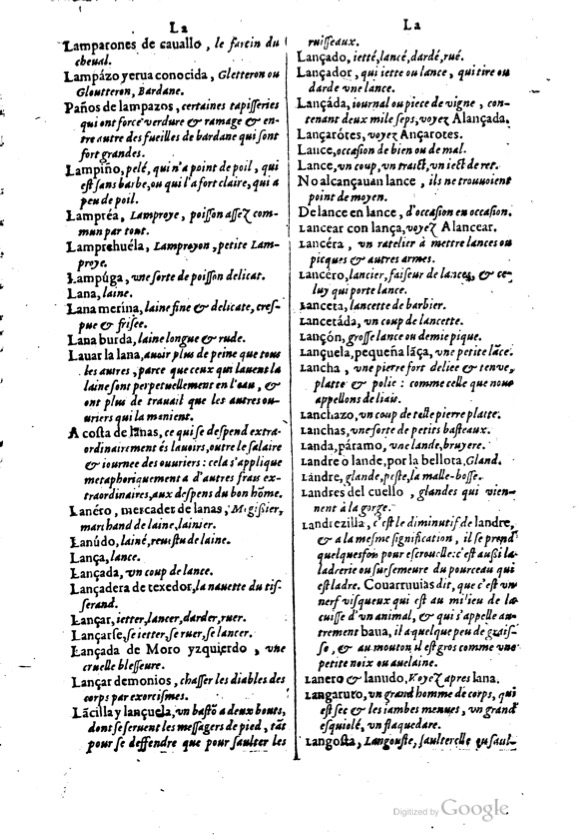 La
Lamparones de cauallo, le farcin du
cheual.
Lampázo yerua conocida, Gletteron ou
Gloutteron, Bardane.
Paños de lampazos, certaines tapisseries
qui ont force verdure & ramage & en-
tre autre des fueilles de bardane qui sont
fort grandes.
Lampiño, pelé, qui n'a point de poil, qui
est sans barbe, ou qui l'a fort claire, qui a
peu de poil.
Lampréa, Lamproye, poisson assez com-
mun par tout.
Lamprehuéla, Lamproyon, petite Lam-
proye.
Lampúga, vne sorte de poisson delicat.
Lana, laine.
Lana merina, laine fine & delicate, cres-
pue & frisee.
Lana burda, laine longue & rude.
Lauar la lana, auoir plus de peine que tous
les autres, parce que ceux qui lauent la
laine sont perpetuellement en l'eau, &
ont plus de trauail que les autres ou-
uriers qui la manient.
A costa de lanas, ce qui se despend extra-
ordinairement és lauoirs, outre le salaire
& iournee des ouuriers: cela s'applique
metaphoriquement a d'autres frais ex-
traordinaires, aux despens du bon hõme.
Lanéro, mercader de lanas, Megissier,
marchand de laine, lainier.
Lanúdo, lainé, reuestu de laine.
Lança, lance.
Lançada, vn coup de lance.
Lançadera de texedor, la nauette du tis-
serand.
Lançar, ietter, lancer, darder, ruer.
Lançarse, se ietter, se ruer, se lancer.
Lançada de Moro yzquierdo, vne
cruelle blesseure.
Lançar demonios, chasser les diables des
corps par exorcismes.
Lãcilla y lançuela, vn bastõ a deux bouts,
dont se seruent les messagers de pied, tãt
pour se deffendre que pour saulter les
La
ruisseaux.
Lançado, ietté, lancé, dardé, rué.
Lançador, qui iette ou lance, qui tire ou
darde vne lance.
Lançáda, iournal ou piece de vigne, con-
tenant deux mile seps, voyez Alançada.
Lançarótes, voyez Ançarotes.
Lance, occasion de bien ou de mal.
Lance, vn coup, vn traict, vn iect de ret.
No alcançauan lance, ils ne trouuoient
point de moyen.
De lance en lance, d'occasion en occasion.
Lancear con lança, voyez Alancear.
Lancéra, vn ratelier à mettre lances ou
picques & autres armes.
Lancéro, lancier, faiseur de lances, & ce-
luy qui porte lance.
Lanceta, lancette de barbier.
Lancetáda, vn coup de lancette.
Lançón, grosse lance ou demie pique.
Lançuela, pequeña lãça, vne petite lãce.
Lancha, vne pierre fort deliee & tenue,
platte & polie: comme celle que nous
appellons de liais.
Lanchazo, vn coup de telle pierre platte.
Lanchas, vne sorte de petits basteaux.
Landa, páramo, vne lande, bruyere.
Landre o lande, por la bellota, Gland.
Lándre, glande, peste, la malle-bosse.
Landres del cuello, glandes qui vien-
nent à la gorge.
Landrezilla, c'est le diminutif de landre,
& a la mesme signification, il se prend
quelquesfois pour escrouelle: c'est außi la-
ladrerie ou sursemeure du pourceau qui
est ladre. Couarruuias dit, que c'est vn
nerf visqueux qui est au milieu de la
cuisse d'vn animal, & qui s'appelle au-
trement baua, il a quelque peu de graiss-
se, & au mouton il est gros comme vne
petite noix ou auelaine.
Lanero & lanudo, Voyez apres lana.
Langaruto, vn grand homme de corps, qui
est sec & les iambes menues, vn grand
esquiolé, vn flaquedare.
Langosta, Langouste, saulterelle ou saul-
Digitized by Google